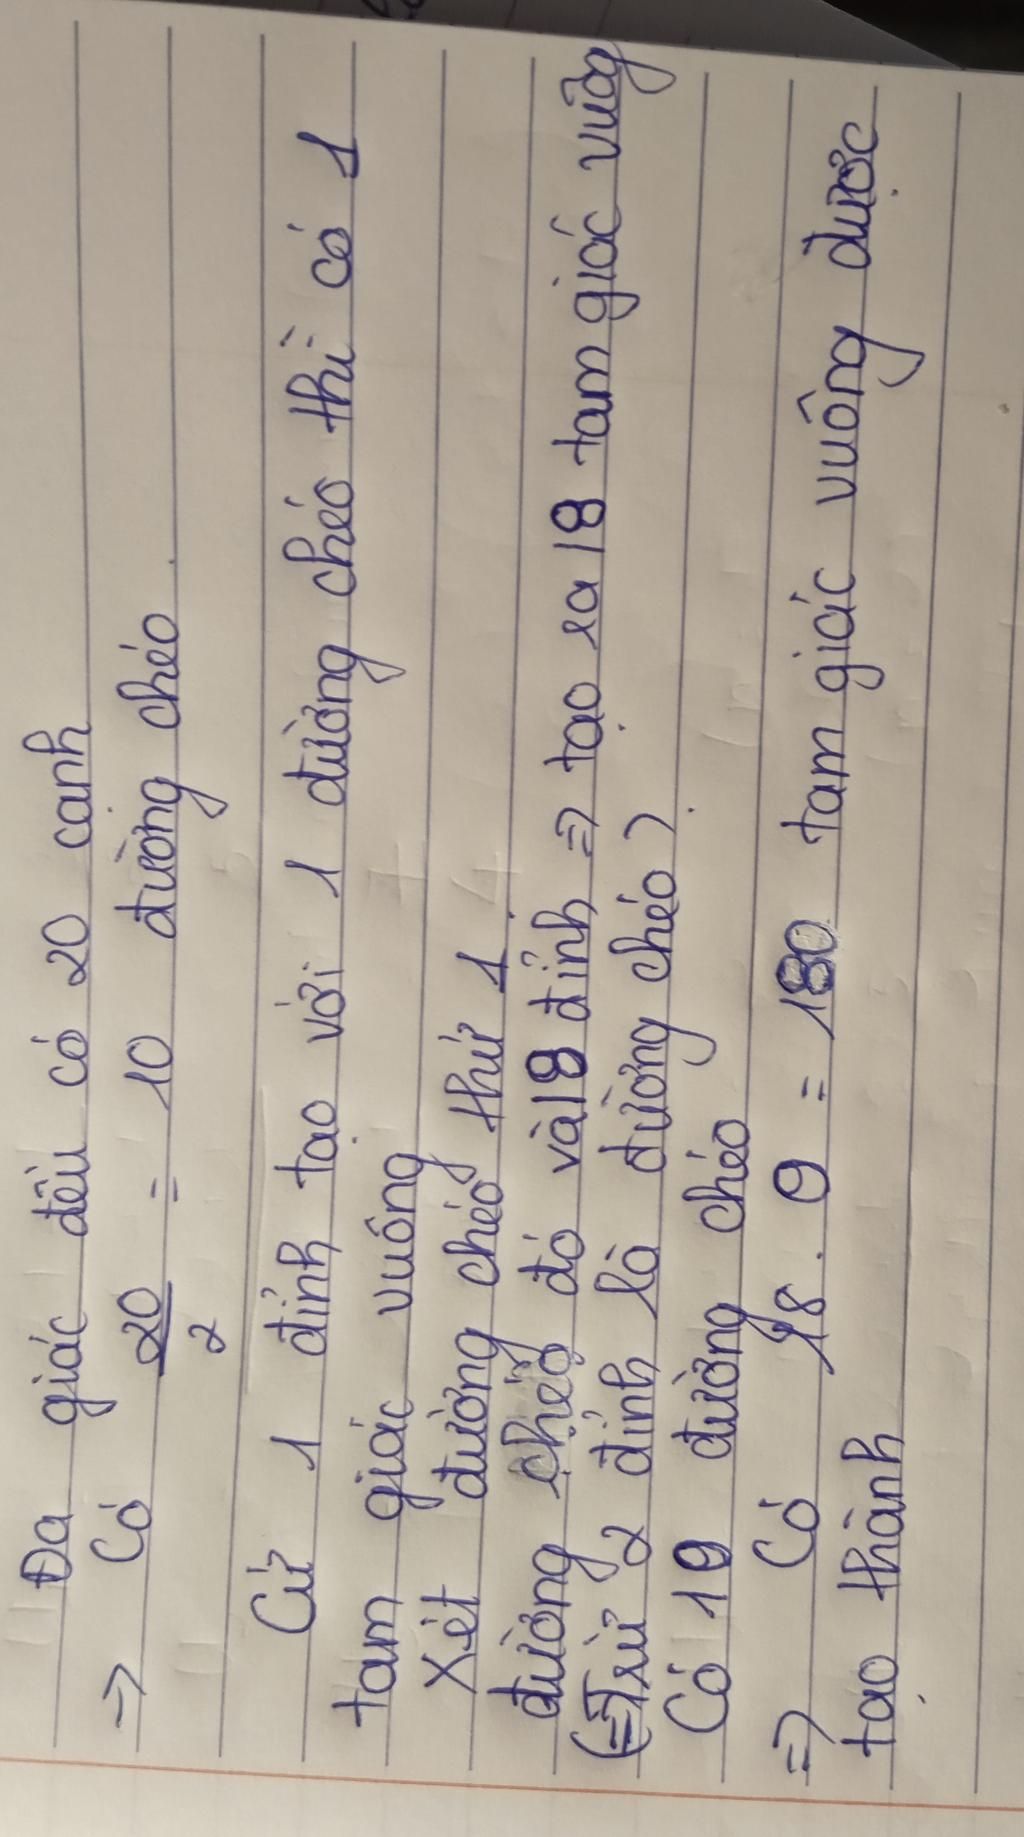 Đa giác đều có 20 cạnh
=> Có 20/2 = 10 đường chéo.
Cứ 1 đỉnh tạo với 1 đường chéo thì có 1
tam giác vuông
Xét đường chéo thứ 1.
đường chéo đó và 18 đỉnh => tạo ra 18 tam giác vuôg
(=> Trừ 2 đỉnh là đường chéo).
Có 19 đường chéo
=> Có 18 . 9 = 180 tam giác vuông được
tạo thành